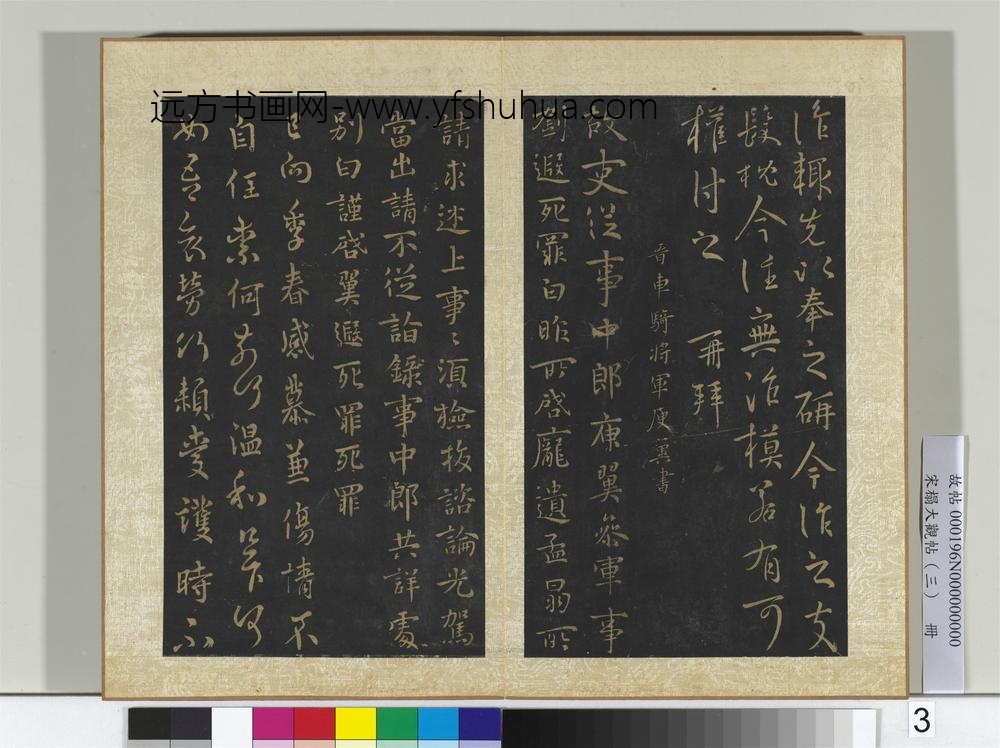 远方书画网-www.yfshuhua.com
作輒先以奉之研今作之支
髮枕今往無治模若有可
權付之 再拜
晉車騎將軍庾翼書
故吏從事中郎庾翼參軍事
劉遐死罪白昨所啓龐遺孟昌所
請求述上事々須檢校諮論光駕
當出請不從詣錄事中郎共詳處
別白謹啓翼遐死罪死罪
已向季春感慕兼傷情不
自任柰何奈何温和足下何
如吾哀勞何賴愛護時不
故帖 000196N000000000
宋搨大觀帖（三） 冊
3